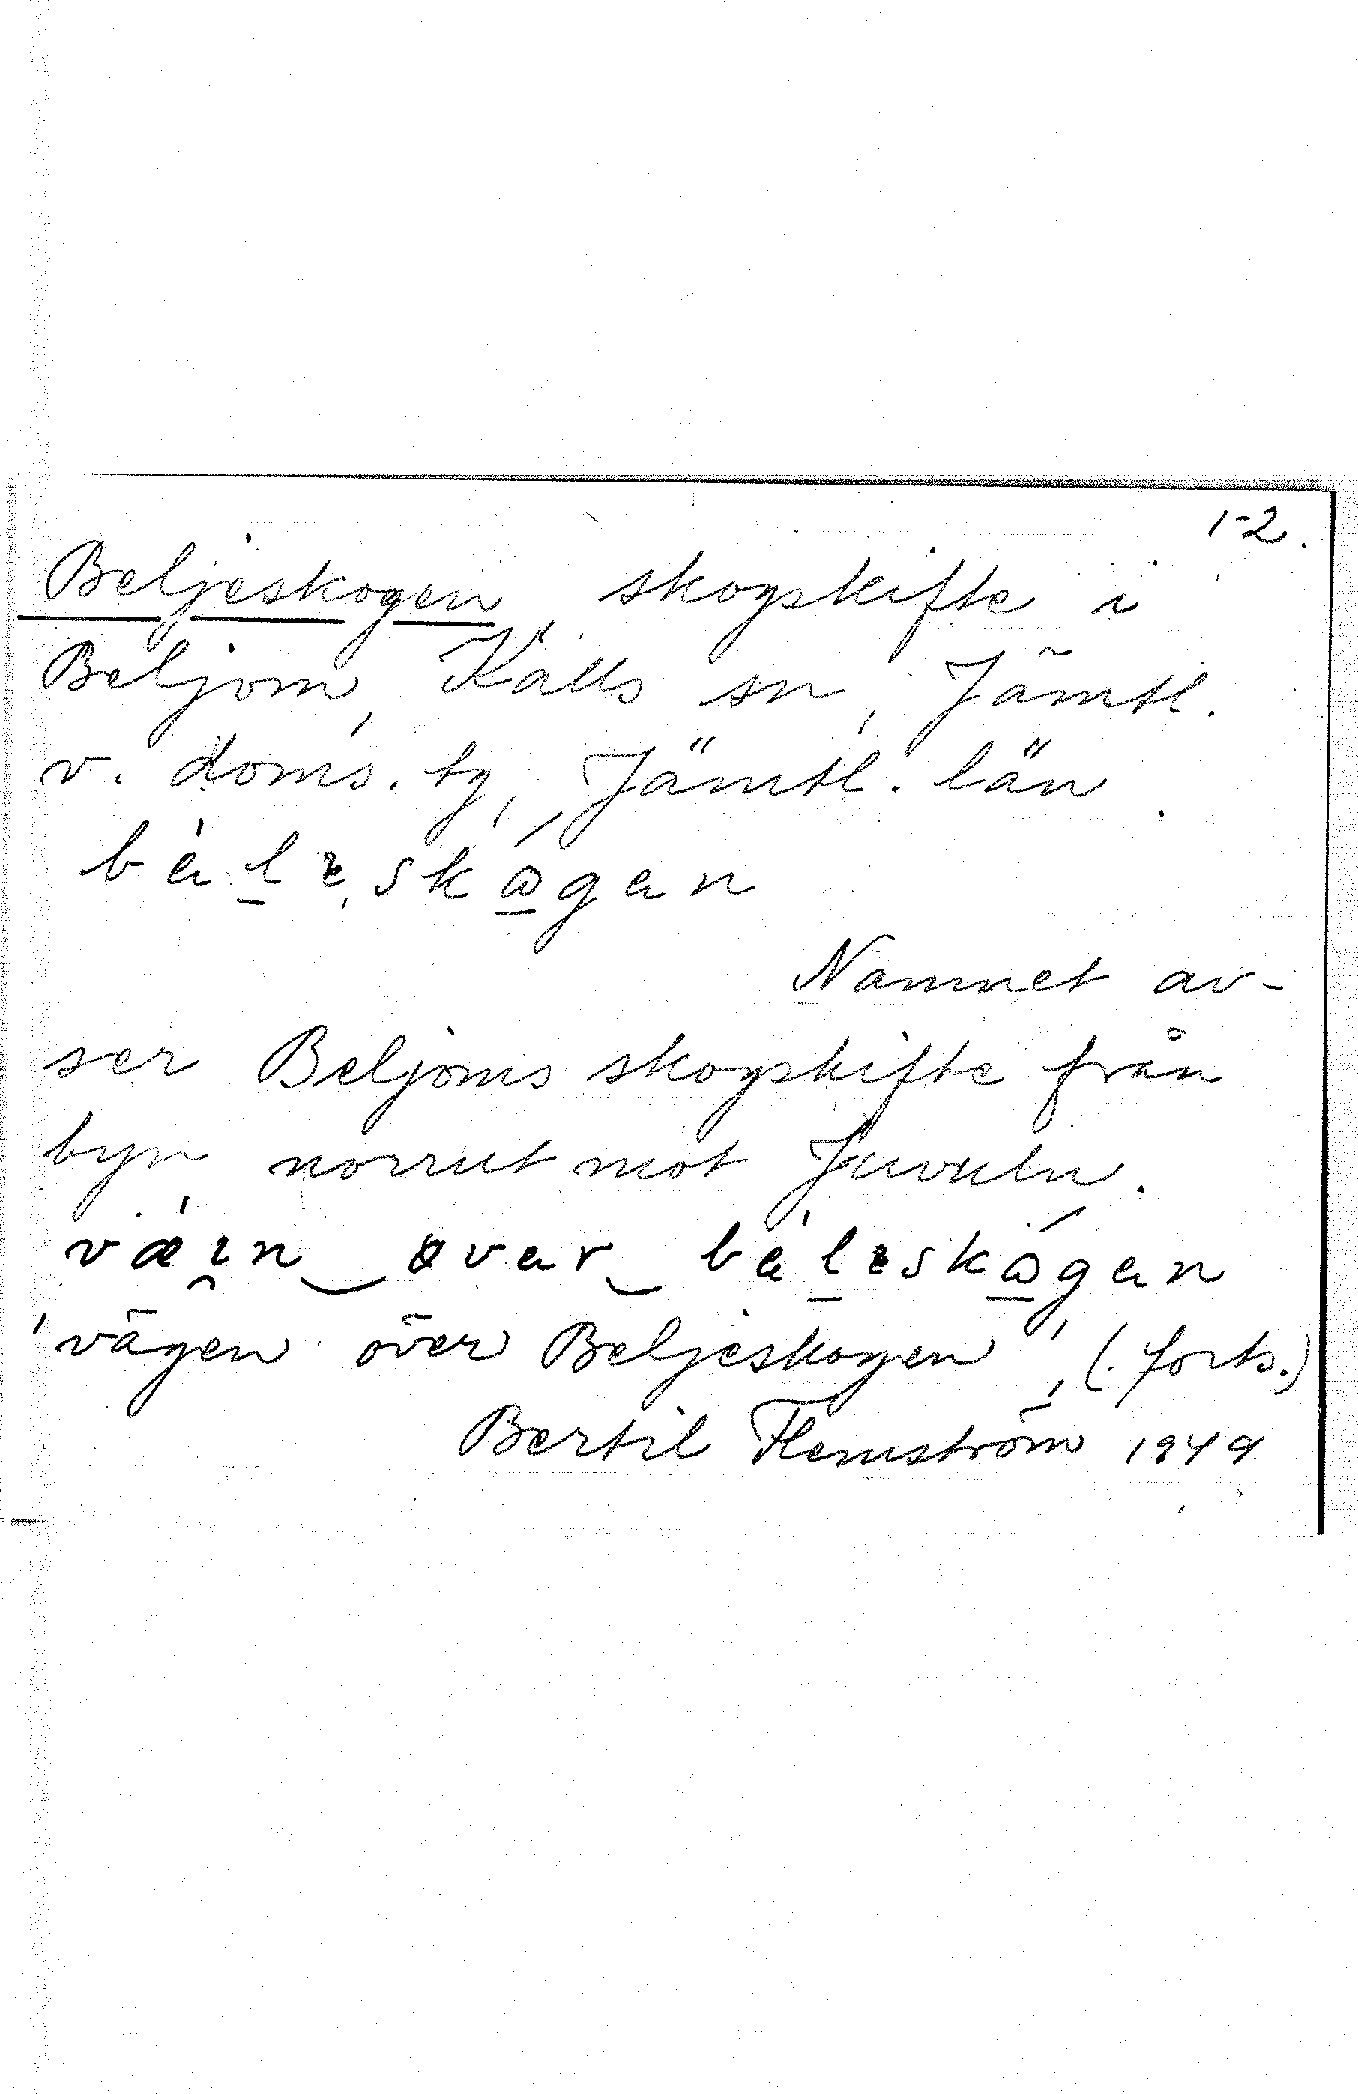 1-2.
Beljeskogen, skogskifte i
Beljom, Kalls sn, Jämtl.
v. doms. tg, Jämtl. län.
Namnet av-
ser Beljoms skogskifte från
byn norrut mot Juvuln.
'vägen över Beljeskogen', (forts.)
Bertil Flemström 1949